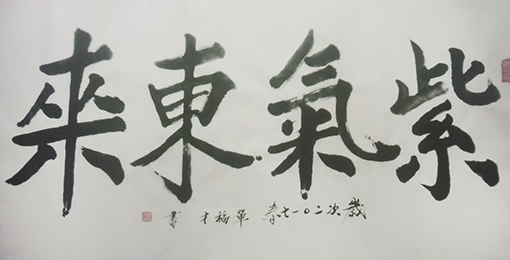 紫氣東來
歲次二〇一七春 單福才書